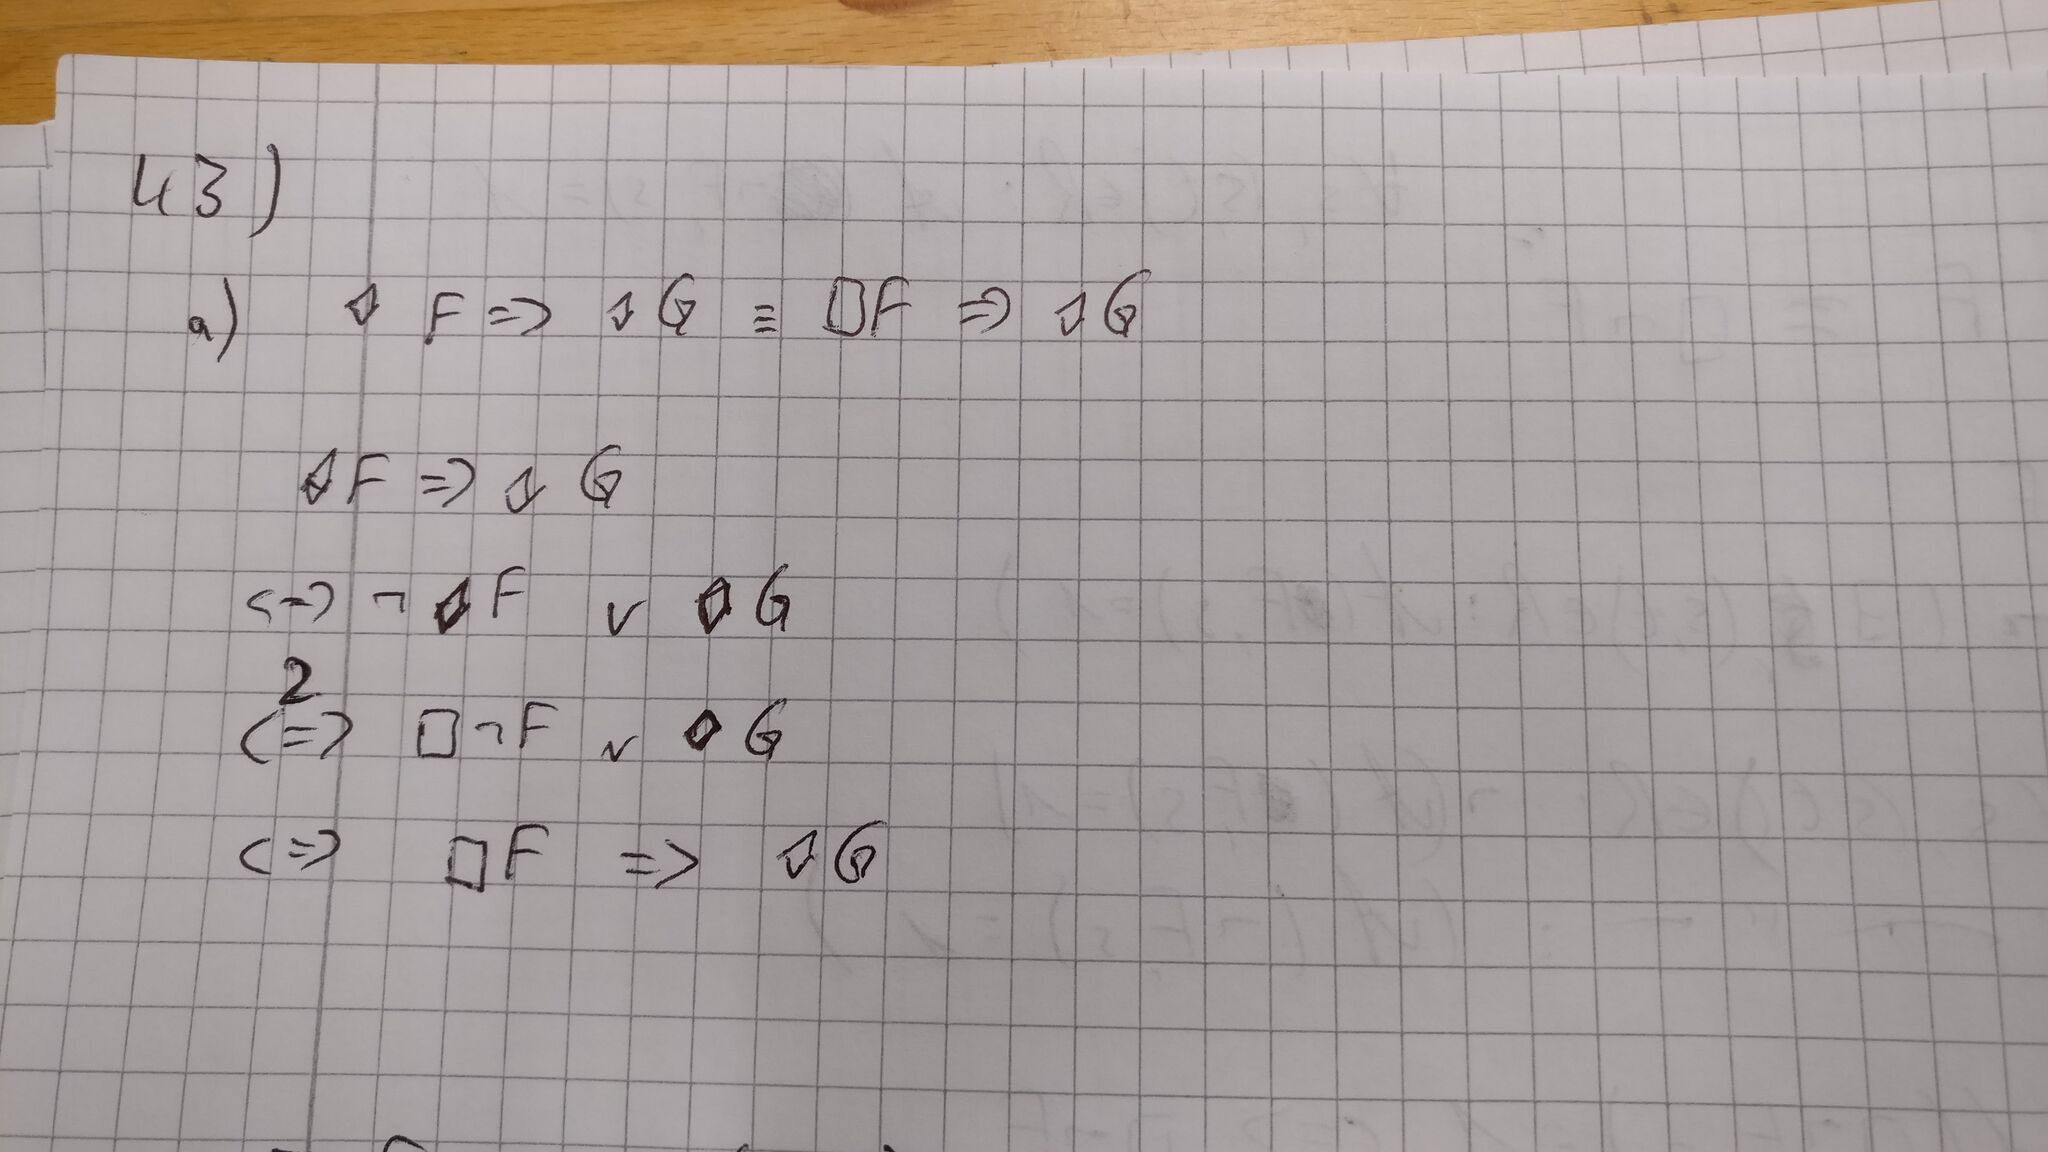 43)
a) ◇ F => ◇ G ≡ □F => ◇ G
◇F => ◇ G
<=> ¬ ◇F ∨ ◇ G
2
<=> □ ¬F ∨ ◇ G
<=> □F => ◇G